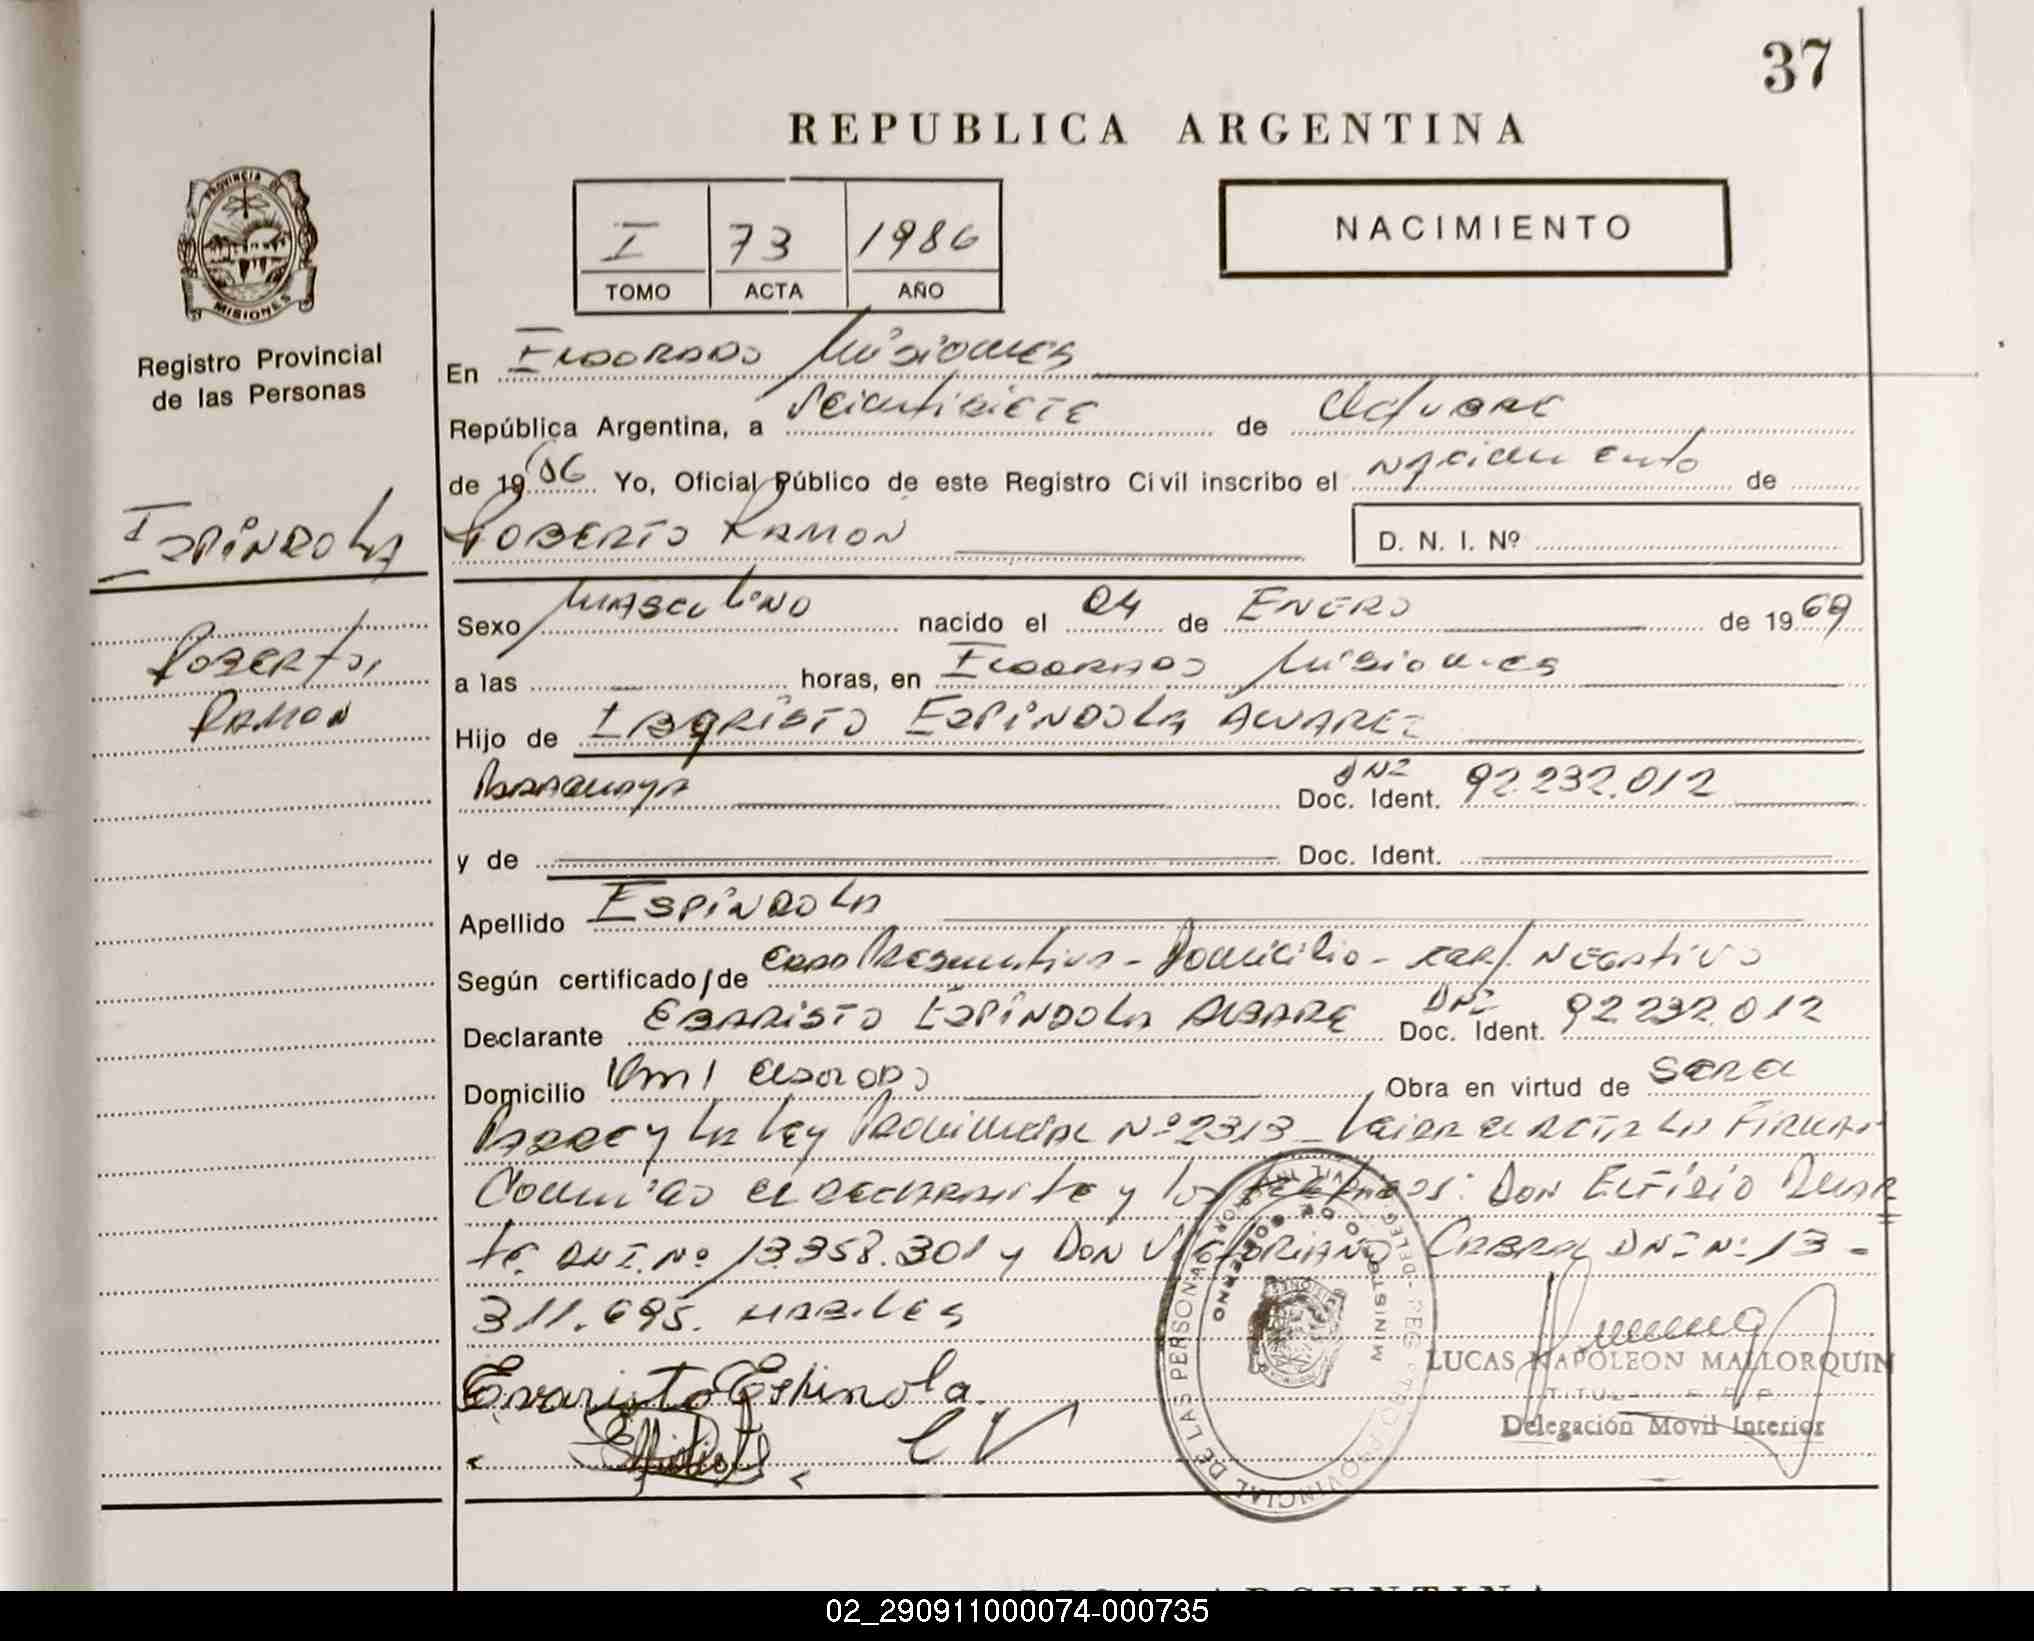 37
REPUBLICA ARGENTINA
I 73 1986
TOMO ACTA AÑO
NACIMIENTO
PROVINCIA DE
MISIONES
Registro Provincial
de las Personas
En ELDORADO Misiones
República Argentina, a Veintisiete de Octubre
de 1986 Yo, Oficial Público de este Registro Civil inscribo el nacimiento de
ROBERTO RAMON D. N. I. Nº
ESPINDOLA
ROBERTO,
RAMON
Sexo MASCULINO nacido el 04 de ENERO de 1969
a las horas, en ELDORADO Misiones
Hijo de EBARISTO ESPINDOLA ALVAREZ
PARAGUAYA DNI Doc. Ident. 92.232.012
y de Doc. Ident.
Apellido ESPINDOLA
Según certificado/de EDAD Presuntiva - Domicilio - CERT. NEGATIVO
Declarante EBARISTO ESPINDOLA ALBARE DNI Doc. Ident. 92.232.012
Domicilio Km 1 ELDORADO Obra en virtud de SER EL
PADRE y LA LEY PROVINCIAL Nº 2313 - LEIDA EL ACTA LA FIRMAN
Conmigo EL DECLARANTE y los testigos: DON ELFIDIO DUAR
TE. DNI. Nº 13.358.301 y DON VICTORIANO CABRAL DNI Nº 13-
311.695. HABILES
Evaristo Espinola
LUCAS NAPOLEON MALLORQUIN
Delegación Movil Interior
MINISTERIO DE GOBIERNO
02_290911000074-000735